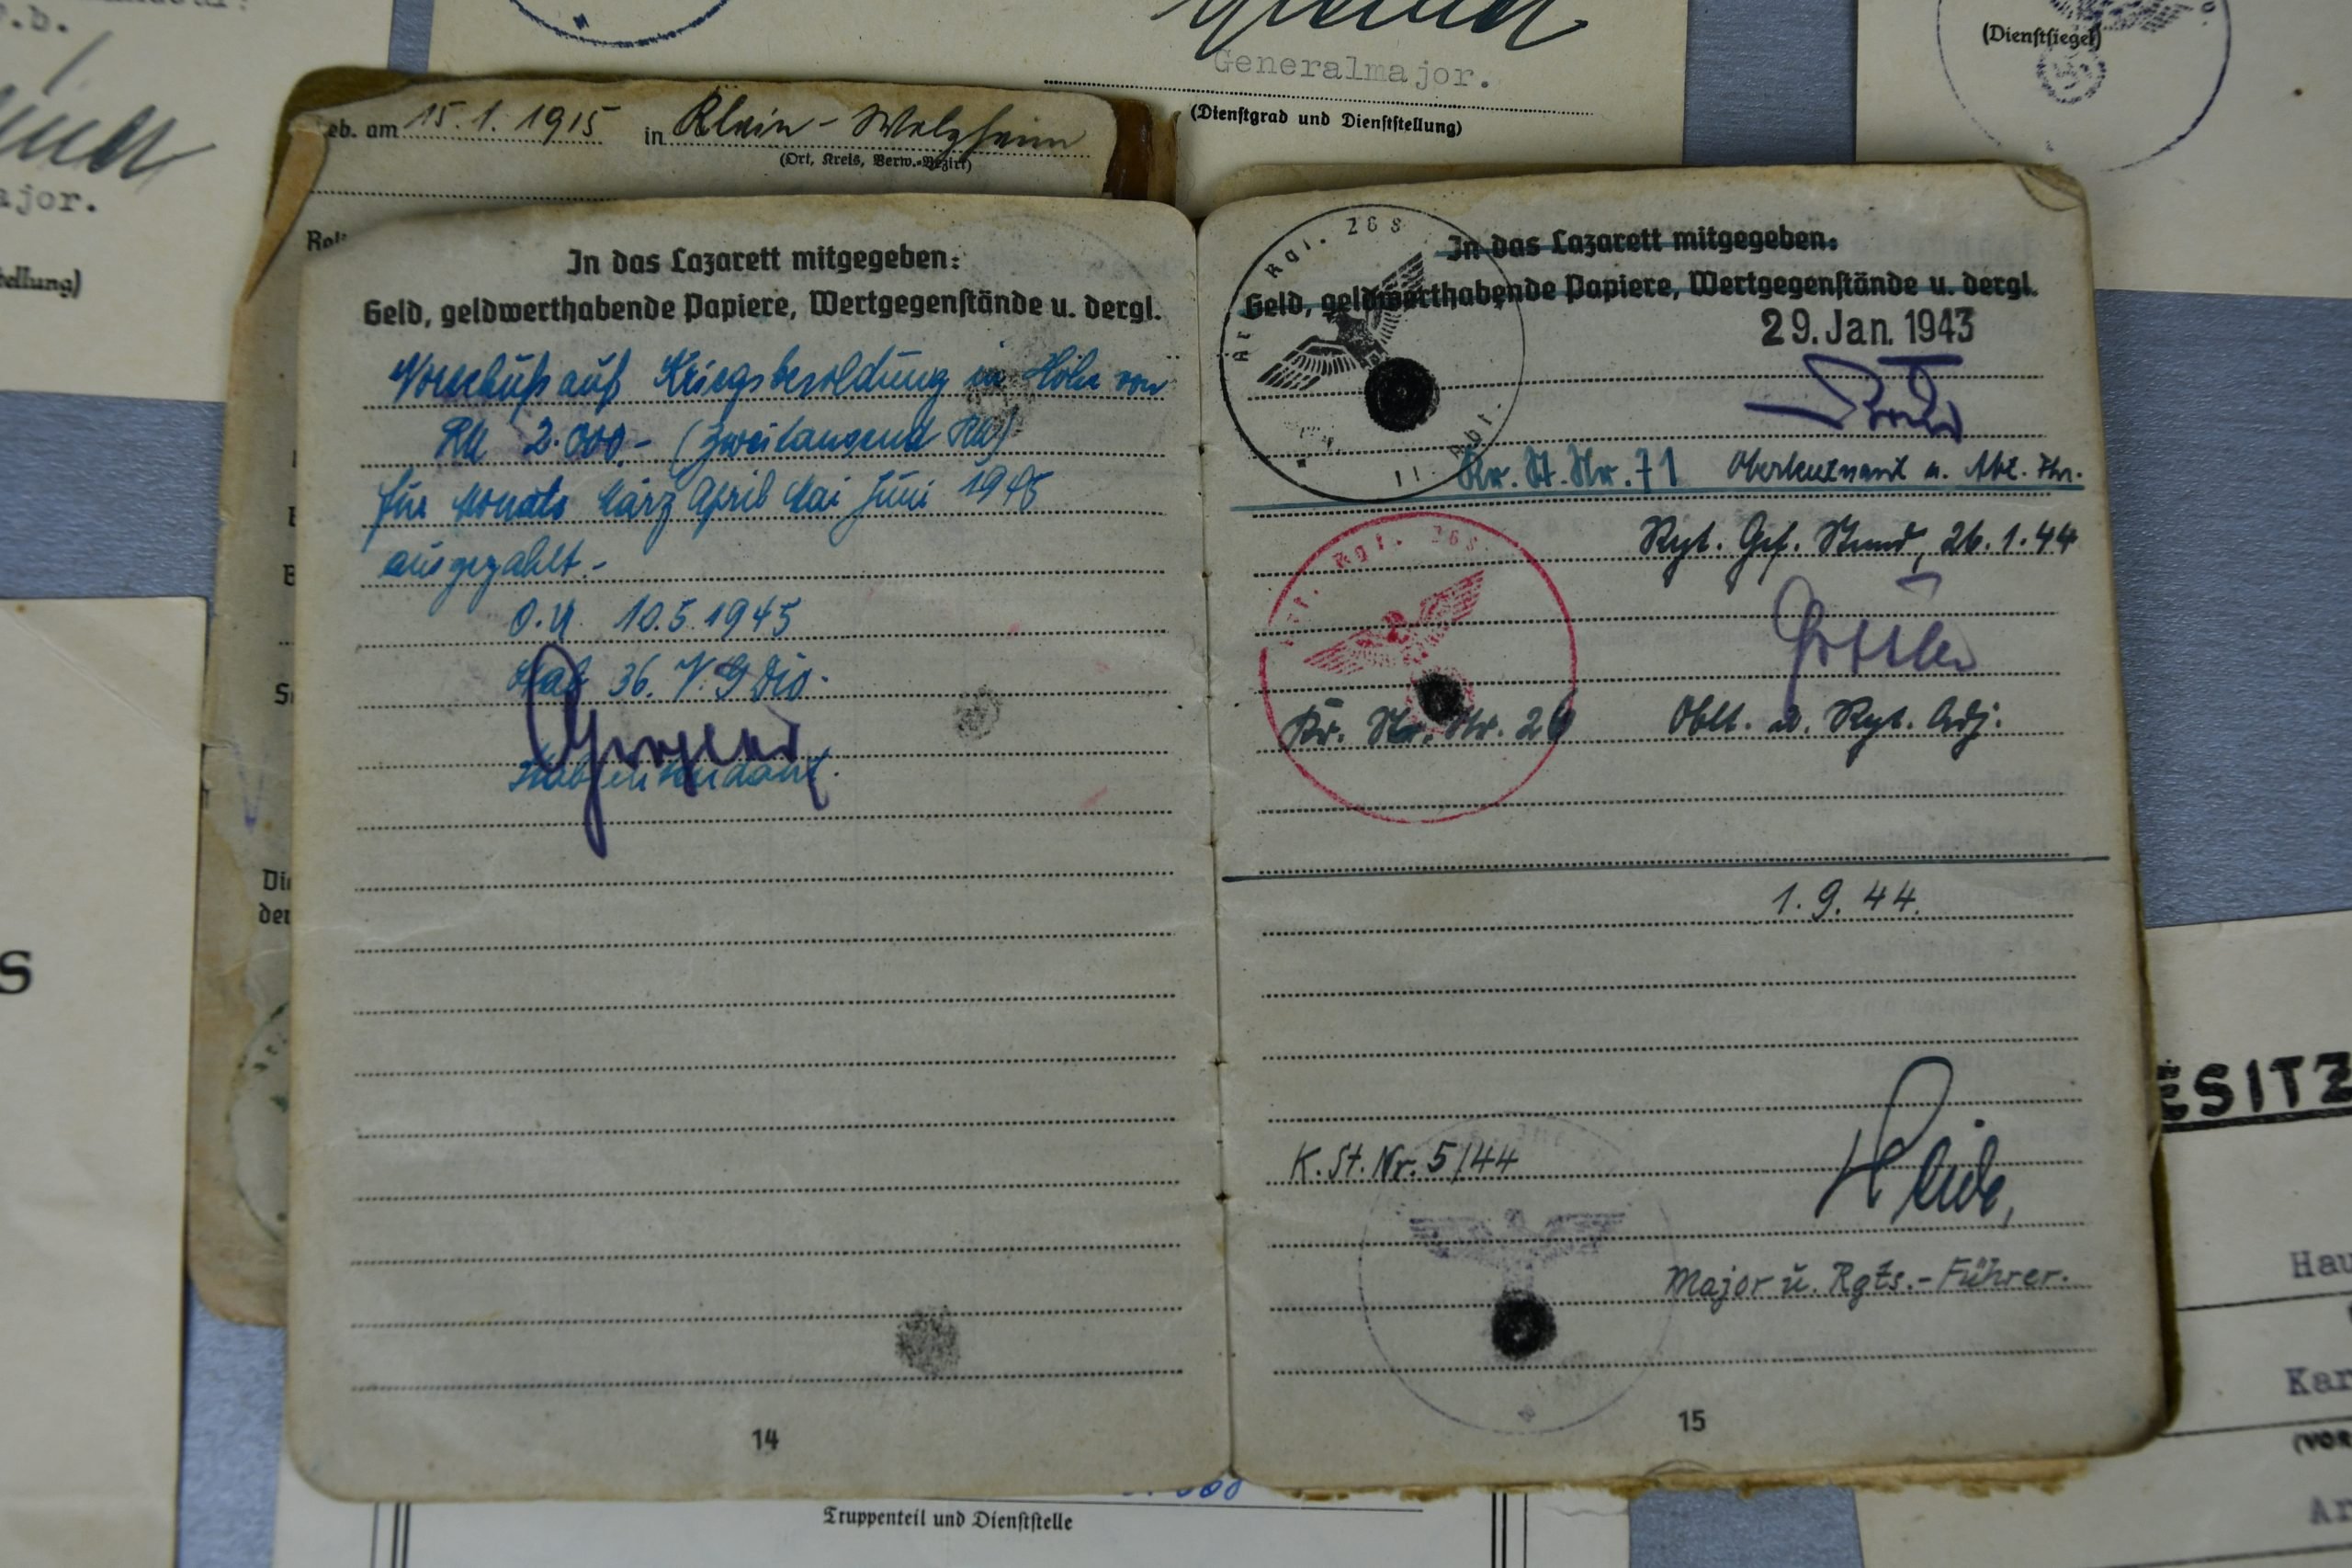 .b.
ajor.
ellung)
Generalmajor.
(Dienstgrad und Dienststellung)
(Dienstsiegel)
eb. am 15.1.1915 in Klein-Welzheim
(Ort, Kreis, Verw.-Bezirk)
Reli
In das Lazarett mitgegeben:
Geld, geldwerthabende Papiere, Wertgegenstände u. dergl.
Vorschuß auf Kriegsbesoldung in Höhe von
RM 2.000.- (zweitausend RM)
für Monate März April Mai Juni 1945
ausgezahlt.-
O.U. 10.5.1945
36. V.G Div.
Stabsintendant.
14
In das Lazarett mitgegeben:
Geld, geldwerthabende Papiere, Wertgegenstände u. dergl.
29. Jan. 1943
Rgt. 268
II. Abt.
Kr. St. Nr. 71 Oberleutnant u. Abt. Fhr.
Rgt. Gef. Stand, 26.1.44
Rgt. 268
Kr. St. Nr. 26 Oblt. u. Rgt. Adj.
1.9.44.
K. St. Nr. 5/44
Major u. Rgts.-Führer.
15
Di
der
S
ESITZ
Hau
Kar
(VOR
Ar
Truppenteil und Dienststelle